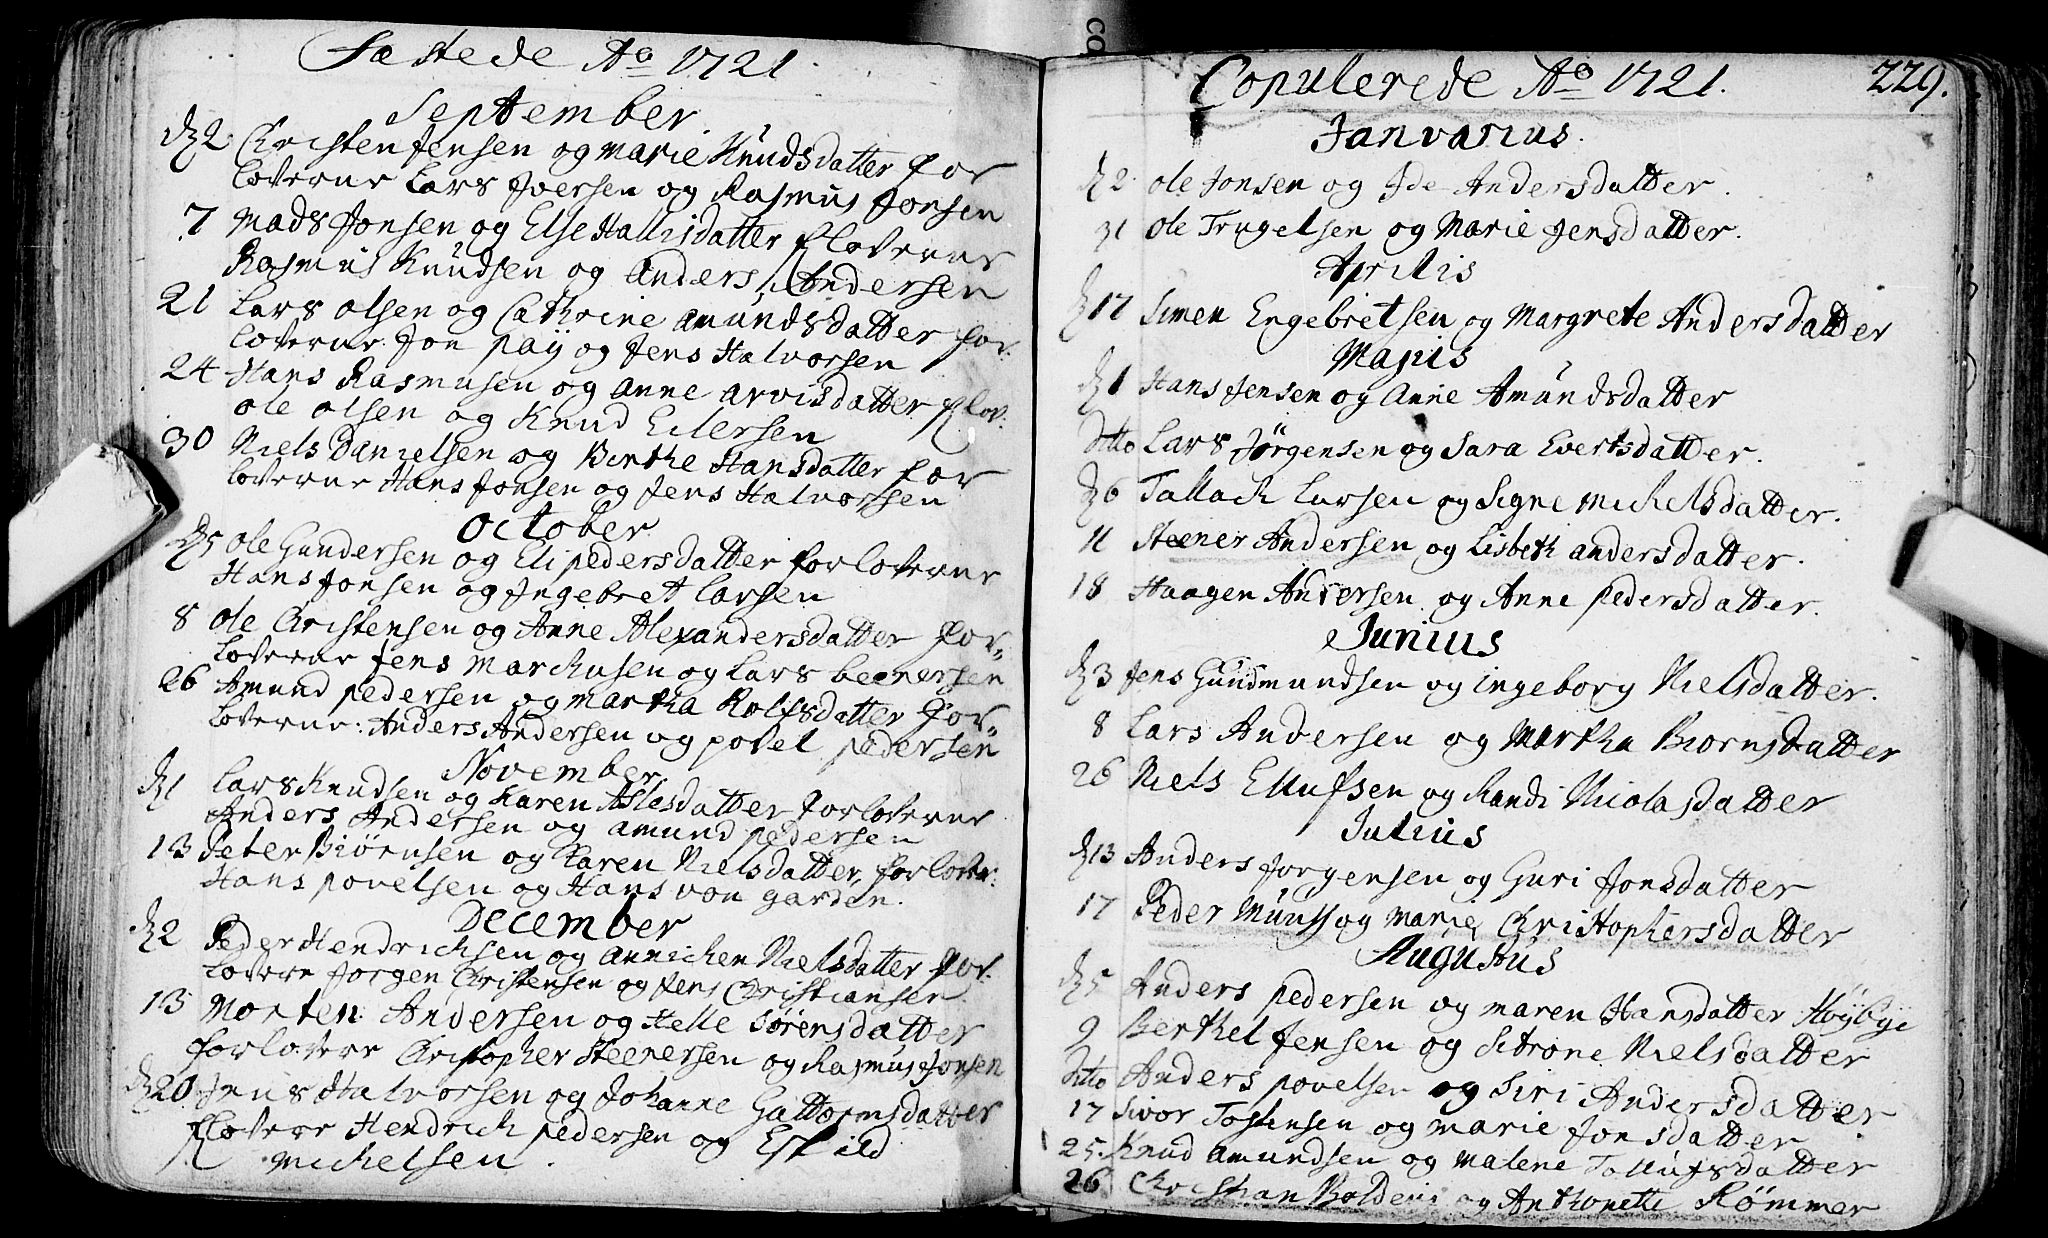 Fæstede Aº 1721
September.
d 2 Christen Jensen og Marie Knudsdatter for
loverne Lars Iversen og Rasmus Jonsen
7 Mads Jonsen og Else Hallisdatter floverne
Rasmus Knudsen og Anders Andersen
21 Lars Olsen og Cathrine Amundsdatter for.
loverne: Jon Paij og Jens Halvorsen
24 Hans Rasmusen og Anne Arvisdatter flov:
Ole Olsen og Knud Eilersen
30 Niels Danielsen og Birthe Hansdatter for
loverne Hans Jonsen og Jens Halvorsen
October
d 5 Ole Gundersen og Eli Pedersdatter forloverne
Hans Jonsen og Ingebret Larsen
8 Ole Christensen og Anne Alexandersdatter for=
loverne Jens Marchusen og Lars Beenersen
26 Amund Pedersen og Martha Rolfsdatter for=
loverne: Anders Andersen og Povel Pedersen
November
d 1 Lars Knudsen og Karen Aslesdatter forloverne
Anders Andersen og Amund Pedersen
13 Peter Biörnsen og Karen Nielsdatter forlover:
Hans Povelsen og Hans von Garden.
December
d 2 Peder Hendrichsen og Annichen Nielsdatter for.
lovere Jorgen Christensen og Jens Christiansen
13 Morten Andersen og Helle Sörensdatter
forlovere Christopher Steenersen og Rasmus Jonsen
d 20 Jens Halvorsen og Johanne Guttormsdatter
flovere Hendrich Pedersen og Eskild
Michelsen.
Copulerede Aº 1721. 229.
Janvarius.
d 2 Ole Jonsen og Ide Andersdatter.
31 Ole Trugelsen og Marie Jensdatter.
Aprilis
d 17 Simen Engebretsen og Margrete Andersdatter
Majus
d 1 Hans Jensen og Anne Amundsdatter
Ditto Lars Jörgensen og Sara Evertsdatter.
d 6 Tallach Larsen og Signe Michelsdatter.
11 Steener Andersen og Lisbeth Andersdatter.
18 Haagen Andersen og Anne Pedersdatter.
Junius
d 3 Jens Gundmundsen og Ingeborg Nielsdatter.
8 Lars Andersen og Martha Biornsdatter
26 Niels Ellufsen og Randi Nicolasdatter
Julius
d 13 Anders Jorgensen og Guri Jonsdatter
17 Peder Munss og Marie Christophersdatter
Augustus
d 5 Anders Pedersen og Maren Hansdatter Höybye
9 Berthel Jensen og Sitrone Nielsdatter
Ditto Anders Povelsen og Siri Andersdatter
17 Sivor Tostensen og Marie Jonsdatter
25. Knud Amundsen og Malene Tollufsdatter
26 Christian Boldevi og Anthonette Römmer